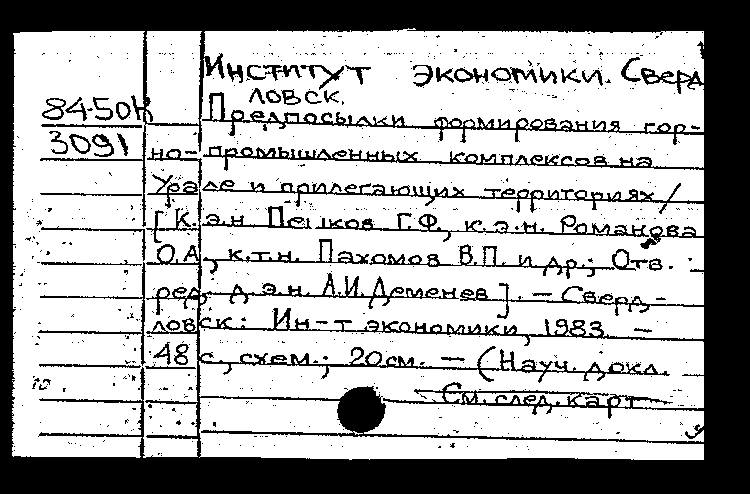 Институт экономики. Сверд
ловск.
84-50К
3091
Предпосылки формирования гор-
но-промышленных комплексов на
Урале и прилегающих территориях/
[К.э.н. Пешков Г.Ф., к.э.н. Романова
О.А., к.т.н. Пахомов В.П. и др.; Отв.
ред. д.э.н. А.И. Деменев]. — Сверд-
ловск: Ин-т экономики, 1983 —
48 с., схем.; 20см. — (Науч. докл.
См. след. карт